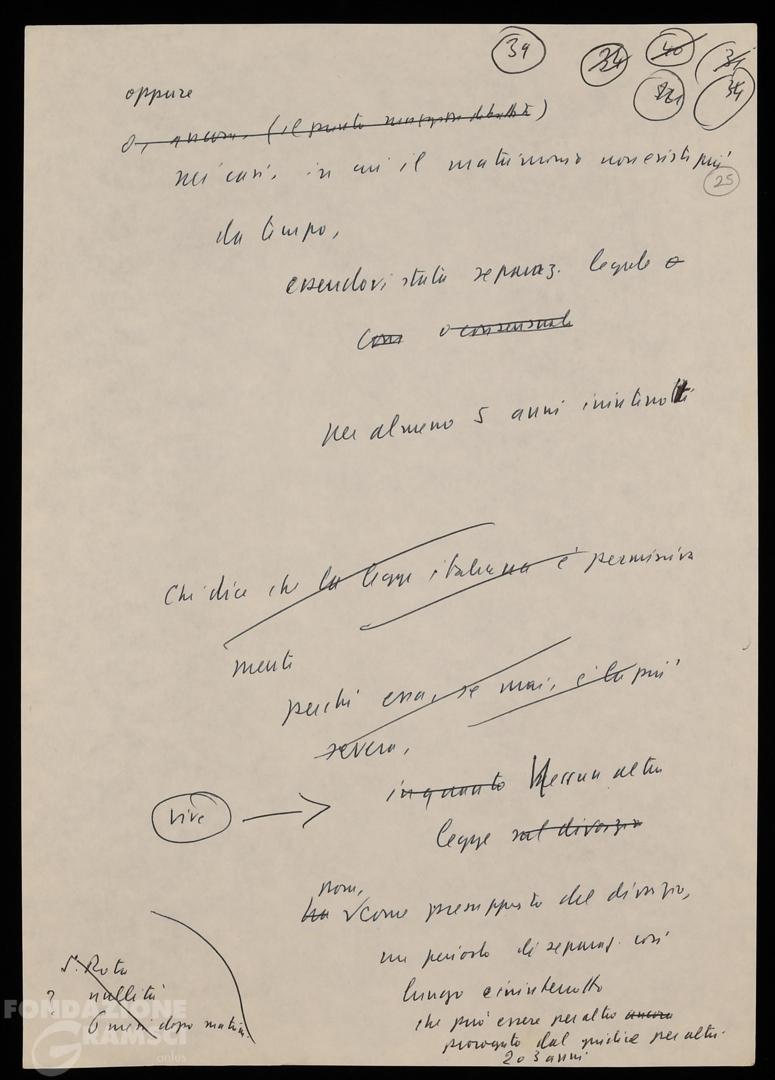 39 34 40 31
221 35
oppure
o, ancora, (il punto più dibattuto)
nei casi, in cui il matrimonio non esiste più
25
da tempo,
essendovi stata separaz. legale o
con o consensuale
per almeno 5 anni ininterrotti
Chi dice che la legge italiana è permissiva
mente
perché essa, se mai, è la più
severa,
inquanto Nessun altra
vive →
legge sul divorzio
pone,
ha come presupposto del divorzio,
un periodo di separaz. così
lungo e ininterrotto
che può essere peraltro ancora
prorogato dal giudice per altri
2 o 3 anni
S. Rota
? nullità
6 mesi dopo matrim.
FONDAZIONE
GRAMSCI
onlus